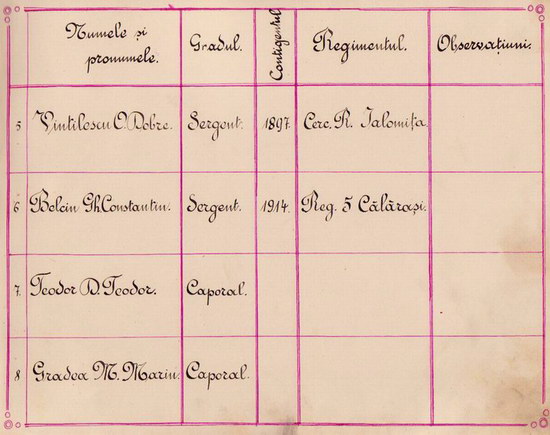 Numele și pronumele.
Gradul.
Contigentul
Regimentul.
Observațiuni.
5 Vintilescu O. Dobre. Sergent. 1897. Cerc. R. Ialomița.
6 Belciu Gh. Constantin. Sergent. 1914. Reg. 5 Călărași.
7. Teodor D. Teodor. Caporal.
8 Gradea M. Marin. Caporal.